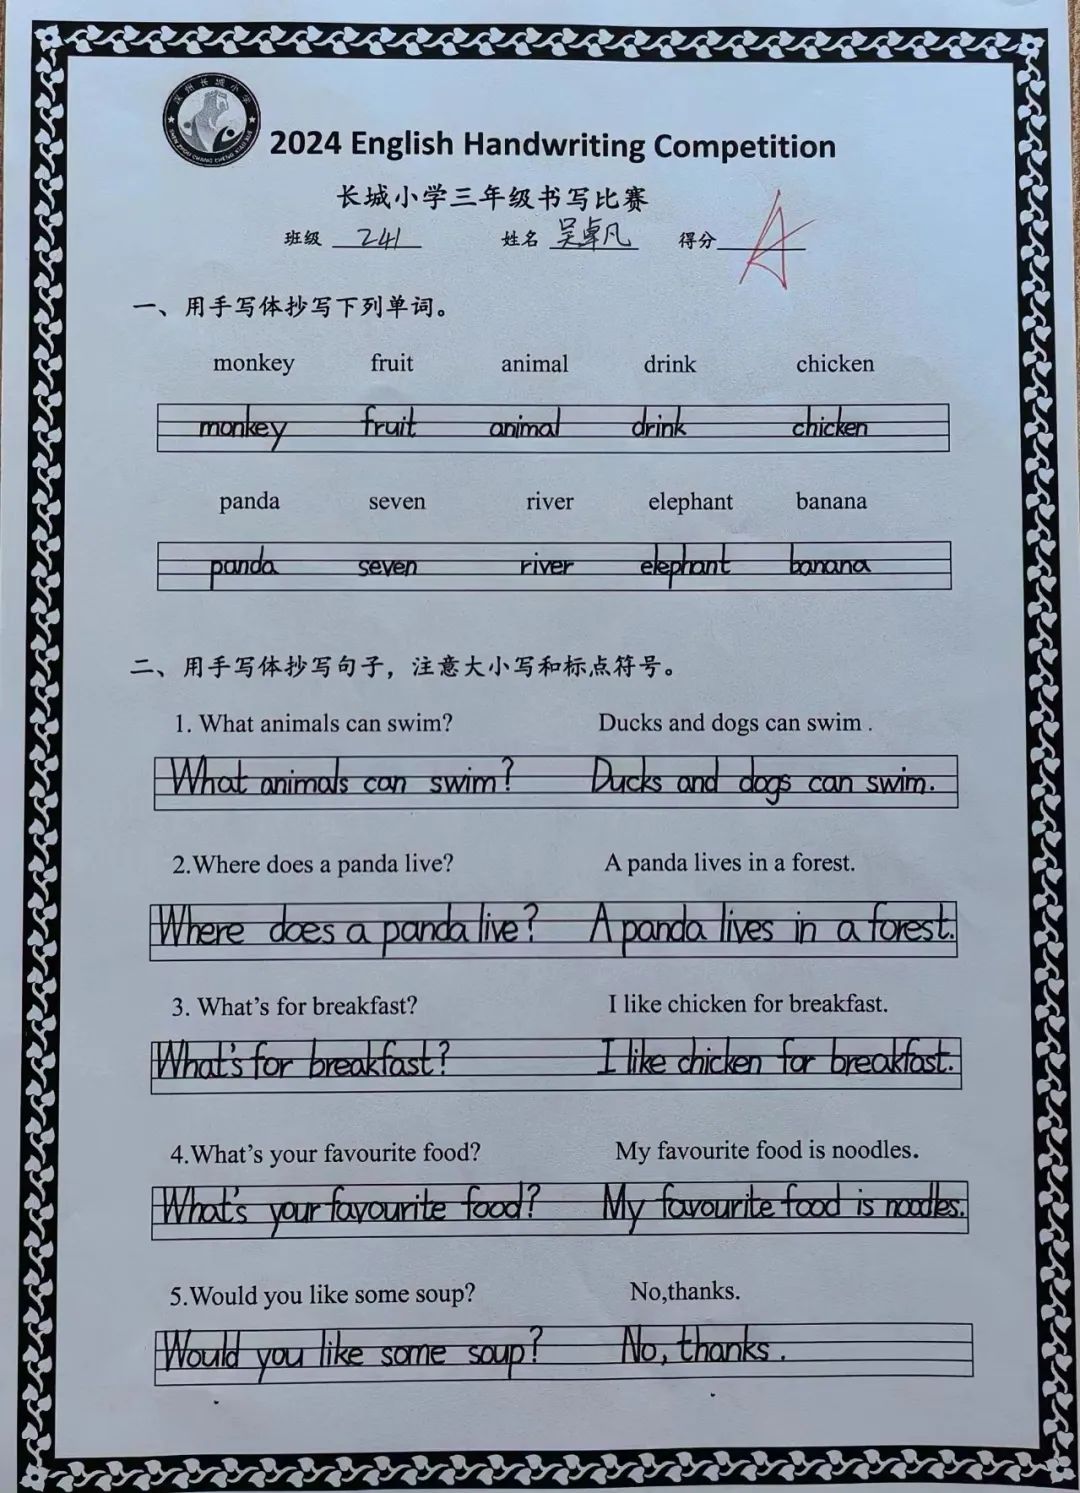 2024 English Handwriting Competition
长城小学三年级书写比赛
班级 241 姓名 吴卓凡 得分 A
一、用手写体抄写下列单词。
monkey fruit animal drink chicken
monkey fruit animal drink chicken
panda seven river elephant banana
panda seven river elephant banana
二、用手写体抄写句子，注意大小写和标点符号。
1. What animals can swim? Ducks and dogs can swim .
What animals can swim? Ducks and dogs can swim.
2.Where does a panda live? A panda lives in a forest.
Where does a panda live? A panda lives in a forest.
3. What's for breakfast? I like chicken for breakfast.
What's for breakfast? I like chicken for breakfast.
4.What's your favourite food? My favourite food is noodles.
What's your favourite food? My favourite food is noodles.
5.Would you like some soup? No,thanks.
Would you like some soup? No, thanks.